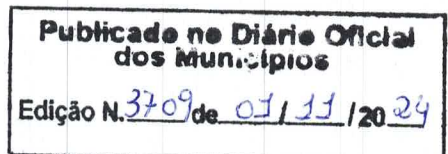 Publicado no Diário Oficial
dos Municípios
Edição N. 3709 de 01/11/2024